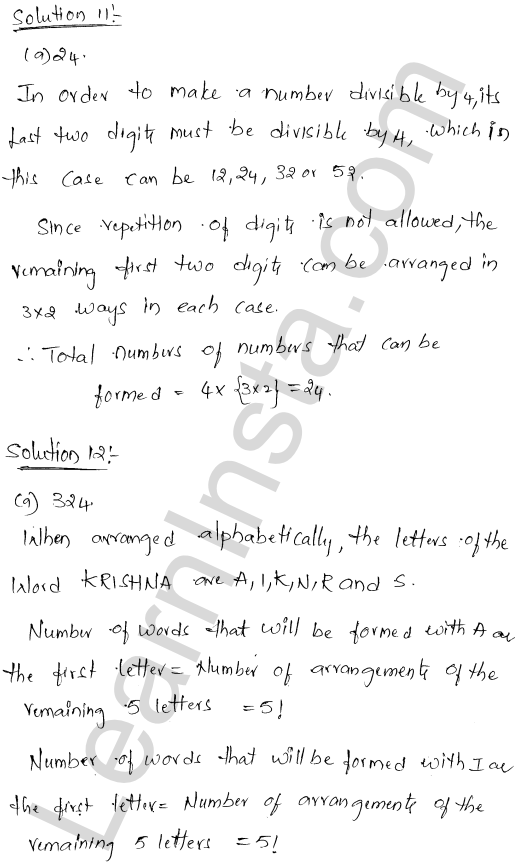 Solution 11:-
(a) 24.
In order to make a number divisible by 4, its
last two digits must be divisible by 4, which in
this case can be 12, 24, 32 or 52.
Since repetition of digits is not allowed, the
remaining first two digits can be arranged in
3×2 ways in each case.
∴ Total numbers of numbers that can be
formed = 4× {3×2} = 24.
Solution 12:-
(a) 324.
When arranged alphabetically, the letters of the
word KRISHNA are A, I, K, N, R and S.
Number of words that will be formed with A as
the first letter = Number of arrangements of the
remaining 5 letters = 5!
Number of words that will be formed with I as
the first letter = Number of arrangements of the
remaining 5 letters = 5!
LearnInsta.com